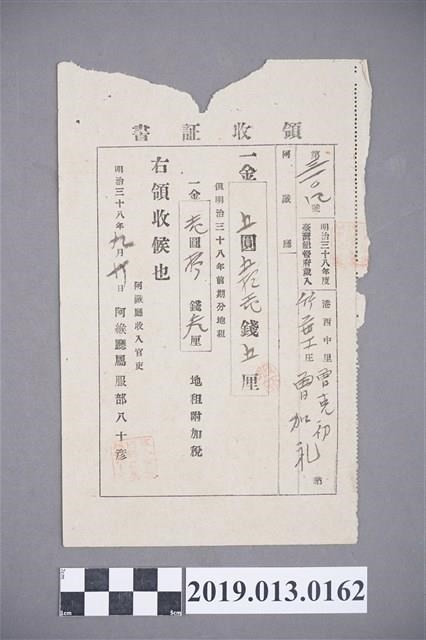 領收証書
第 號
明治三十八年度
臺灣總督府歲入
阿緱廳
港西中里
庄
曾克初
曾加礼
納
一金 五圓五拾毛錢五厘
但明治三十八年前期分地租
一金 圓 錢 厘 地租附加税
右領收候也
明治三十八年九月廿日
阿緱廳收入官吏
阿緱廳屬服部八十彦
2019.013.0162
1cm
5cm